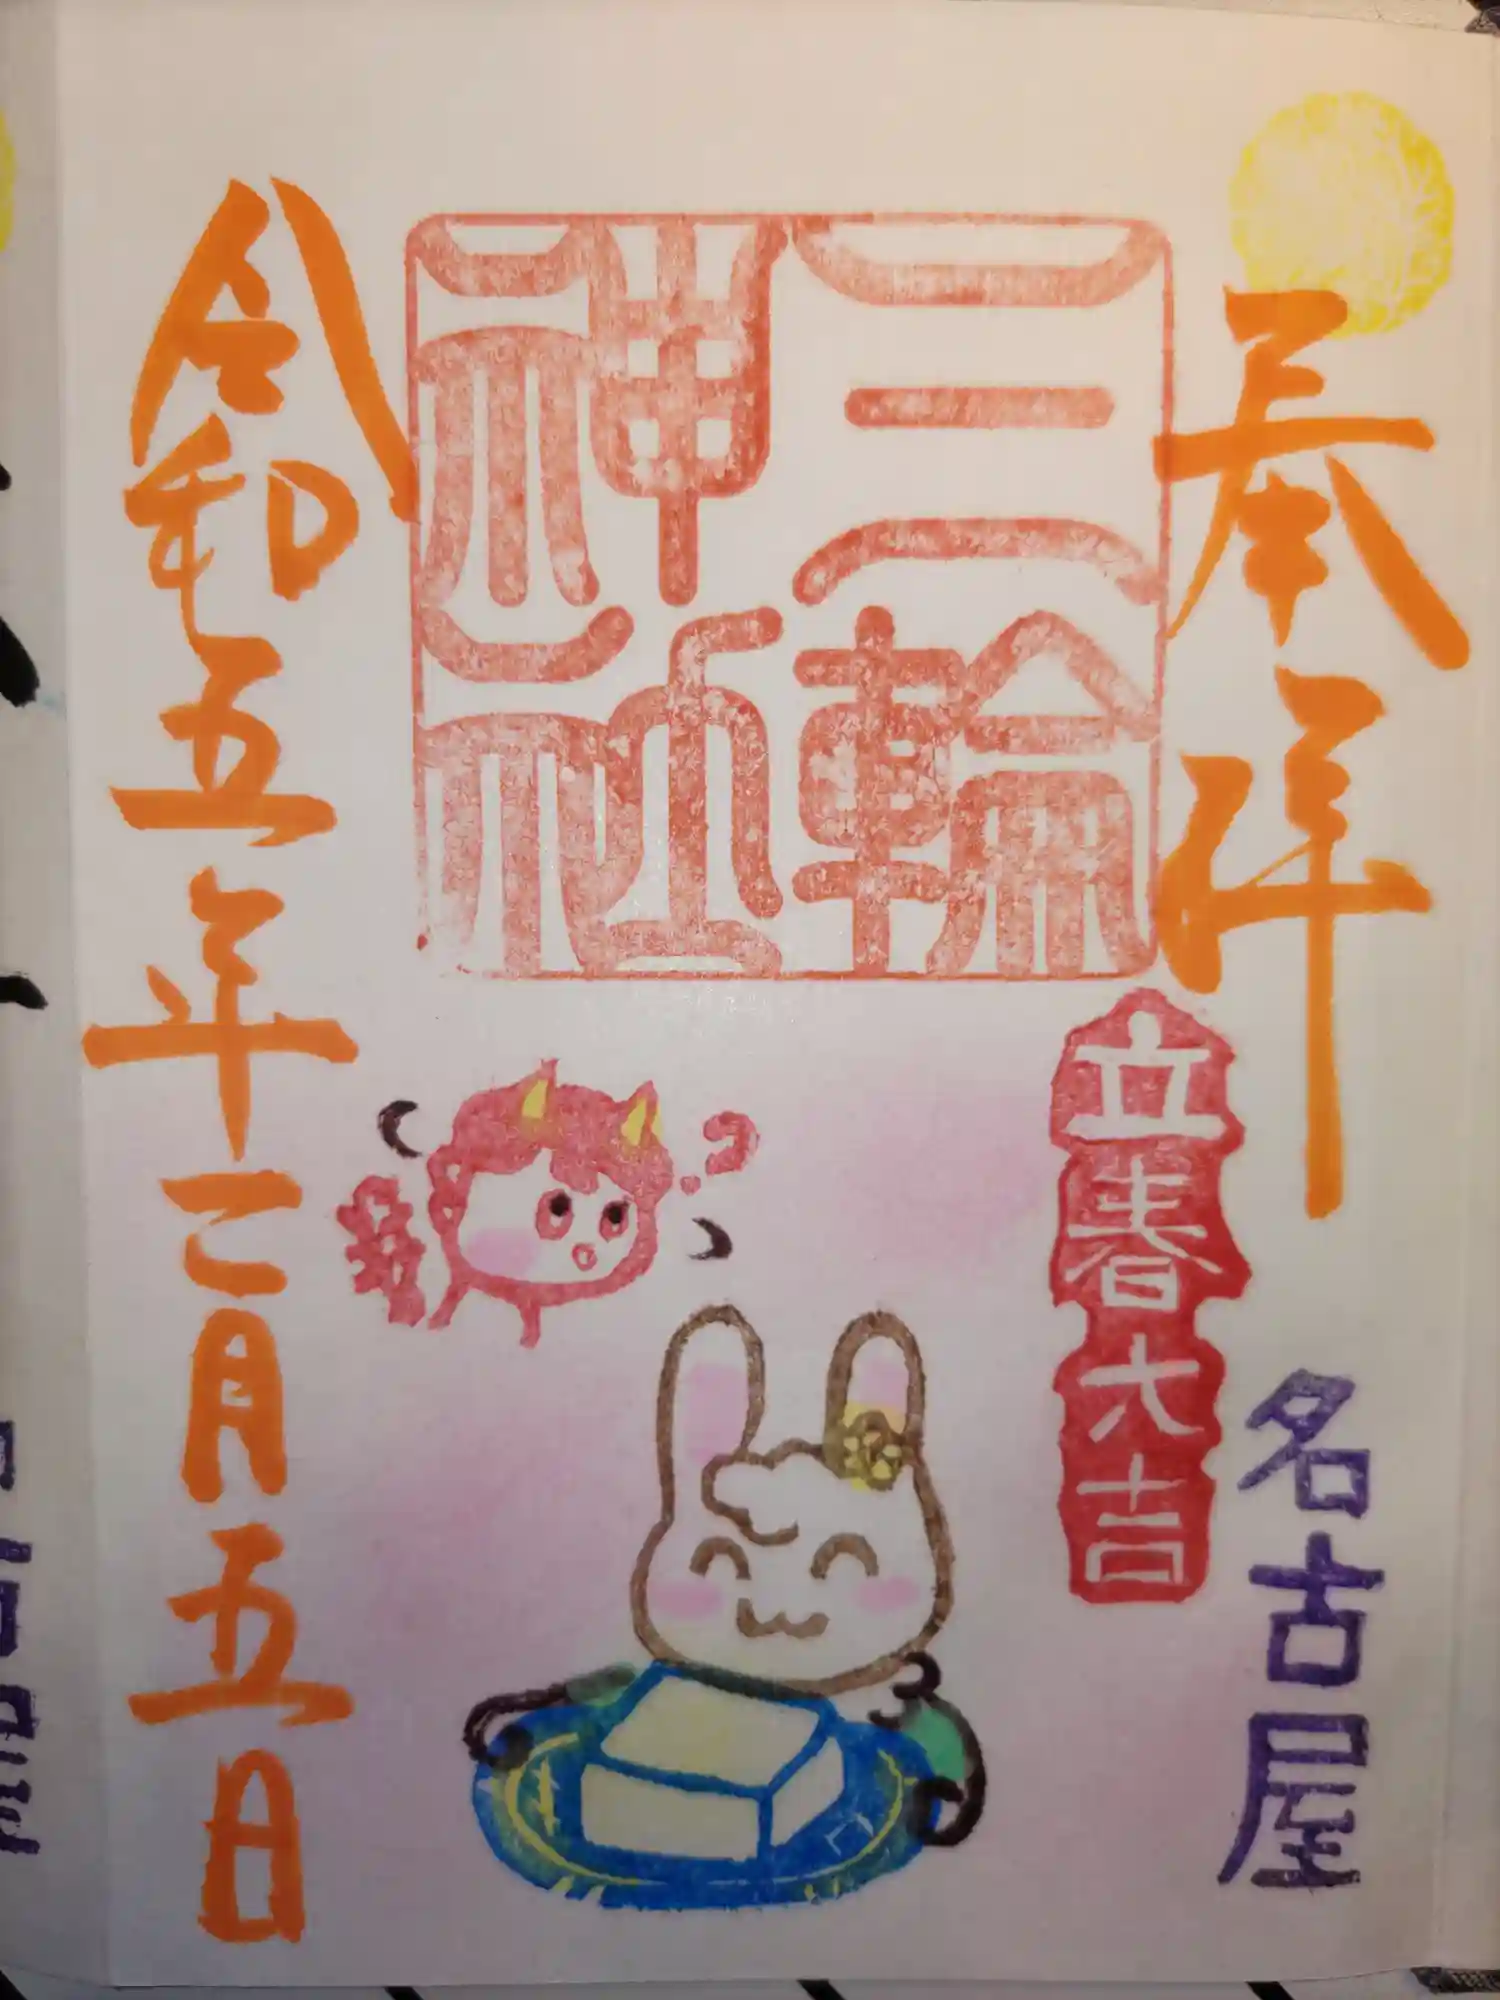 奉拝
名古屋
立春大吉
三輪
神社
令和五年二月五日